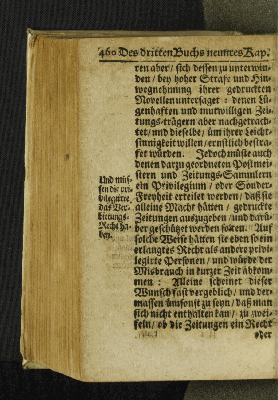 460 Des dritten Buchs neuntes Kap.
ren aber / sich dessen zu unterwin-
den / bey hoher Straffe und Hin-
wegnehmung ihrer gedruckten
Novellen untersaget: denen Lü-
genhafften und mutwilligen Zei-
tungs-trägern aber nachgetrach-
tet / und dieselbe / üm ihrer Leicht-
sinnigkeit willen / ernstlich bestra-
fet würden. Jedoch müste auch
denen darzu geordneten Postmei-
stern und Zeitungs-Sammlern
ein Privilegium / oder Sonder-
Freyheit erteilet werden / daß sie
alleine Macht hätten / gedruckte
Zeitungen auszugeben / und darü-
ber geschützet werden solten. Auf
solche Weise hätten sie eben so ein
erlangtes Recht als andere privi-
legirte Personen / und würde der
Misbrauch in kurtzer Zeit abkom-
men: Alleine scheinet dieser
Wunsch fast vergeblich / und der-
massen ümsonst zu seyn / daß man
sich nicht enthalten kan / zu zwei-
feln / ob die Zeitungen ein Recht
oder
Und müs-
sen die pri-
vilegirte
das Ver-
bietungs-
Recht ha-
ben.